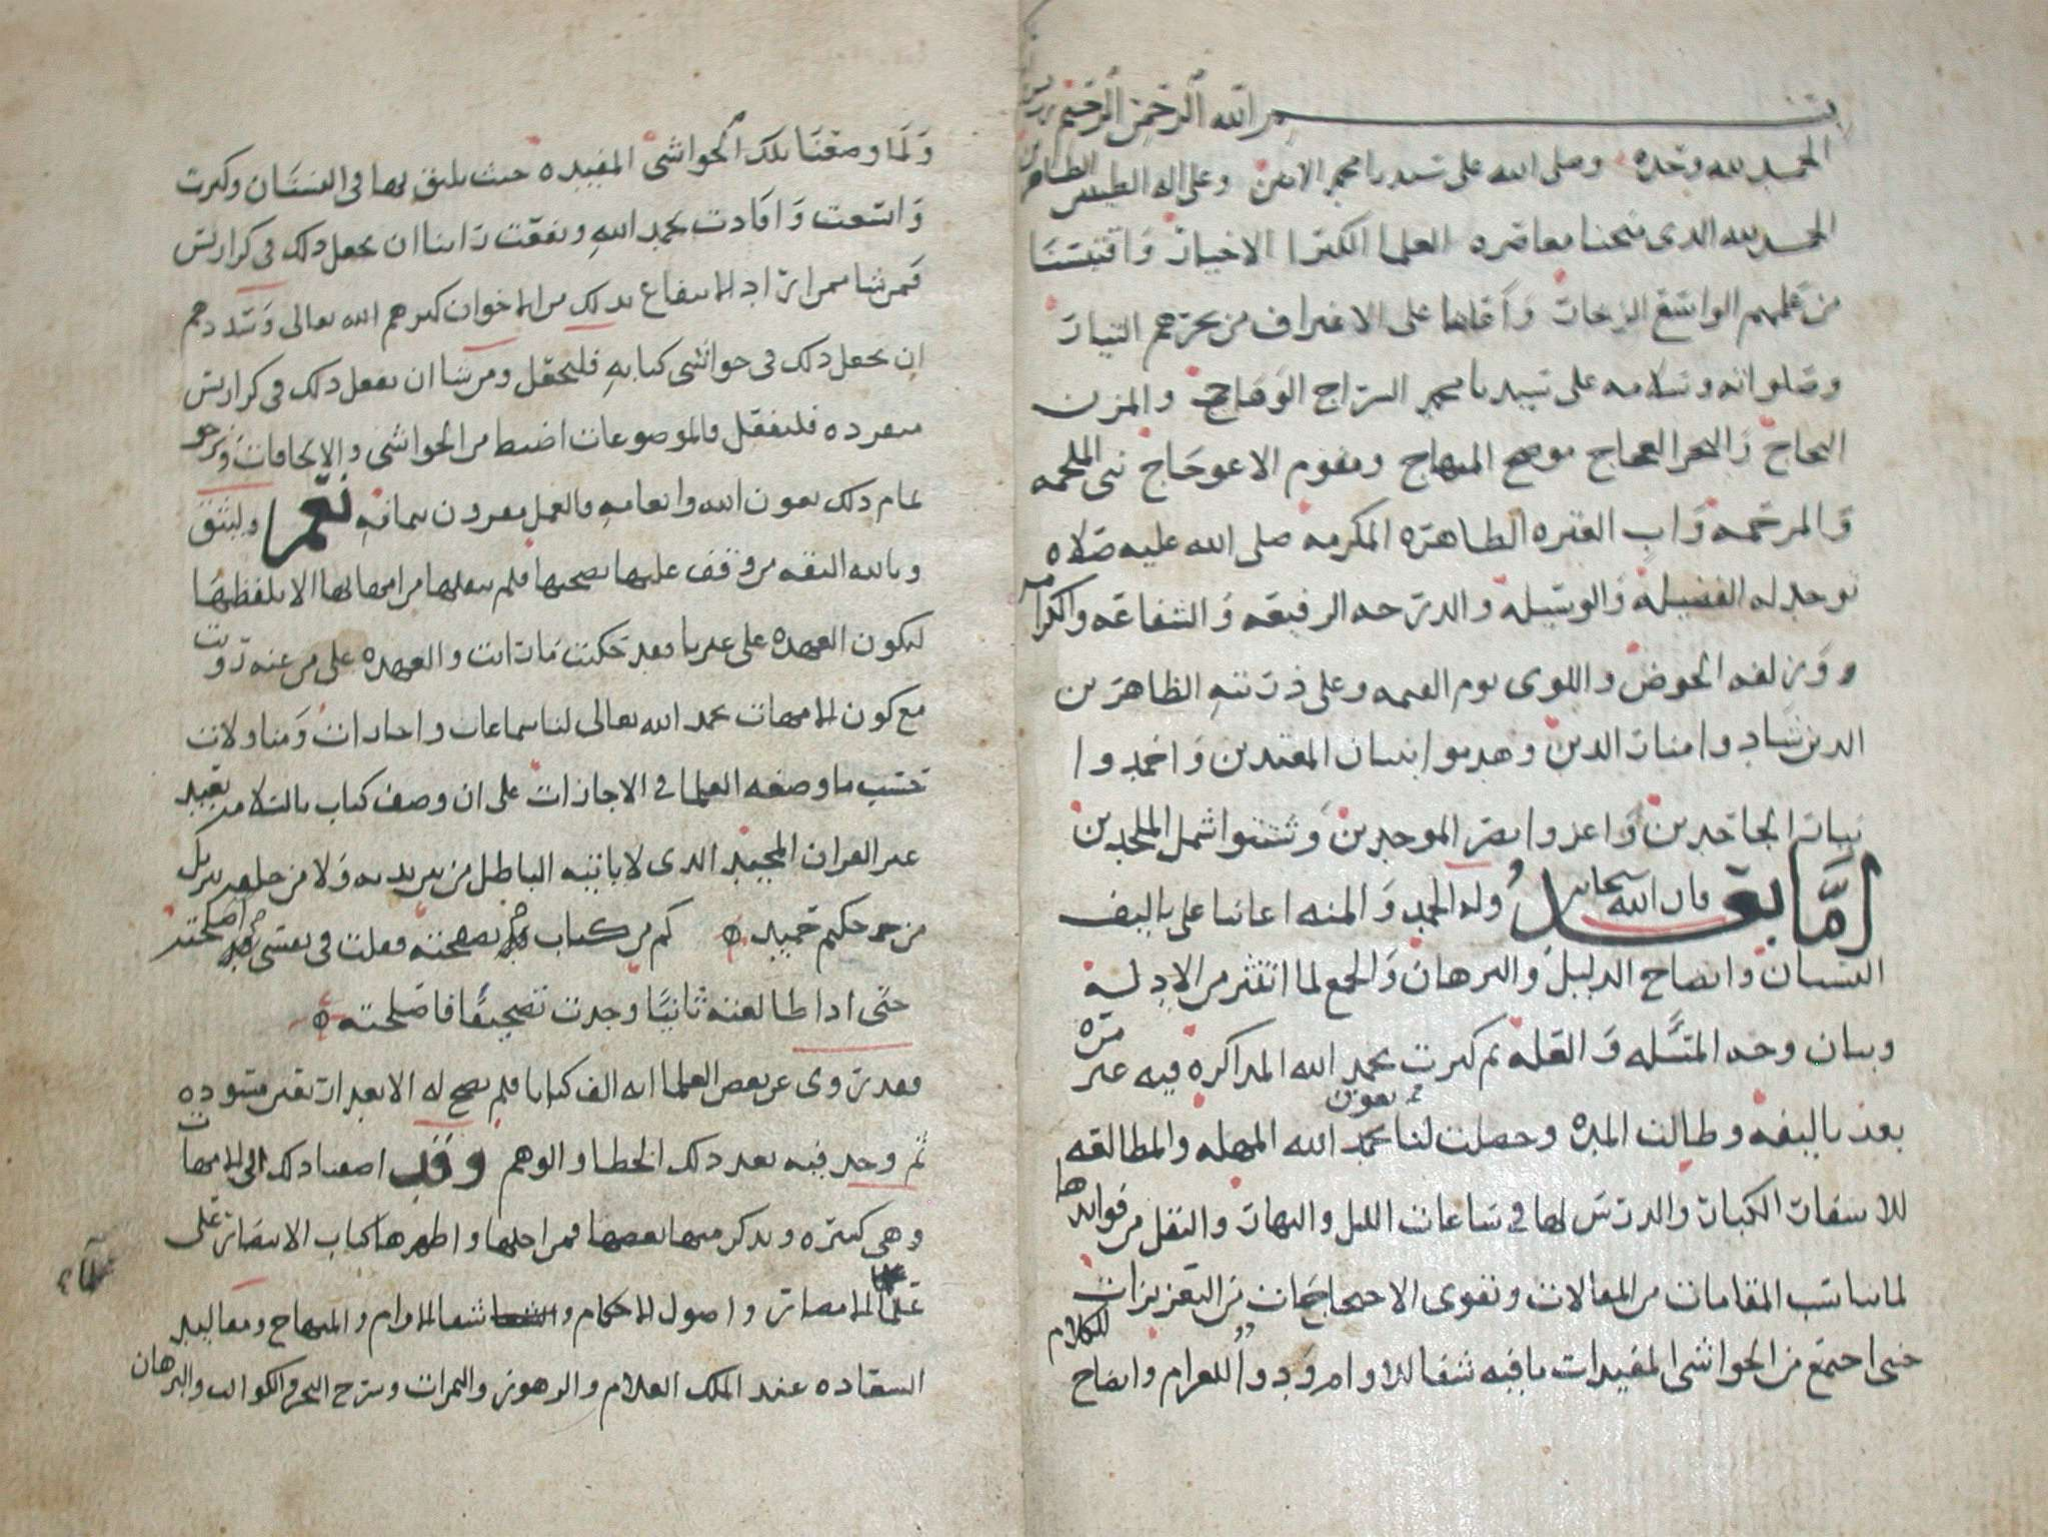 بسم الله الرحمن الرحيم
الحمد لله وحده وصلى الله على سيدنا محمد الامين وعلى اله الطيبين الطاهرين
الحمد لله الدى منحنا معاصره العلما الكبرا الاخيار واقتبسنا
من علمهم الواسع الزخار واعاننا على الاغتراف من بحرهم التيار
وصلواته وسلامه على سيدنا محمد السراج الوهاج والمزن
الثجاج والبحر العجاج موضح المنهاج ومقوم الاعوجاج نبى الملحمه
والمرحمه واب العتره الطاهره المكرمه صلى الله عليه صلاه
توجب له الفضيله والوسيله والدرجه الرفيعه والشفاعه والكرامه
وورثه الحوض واللوى يوم القيمه وعلى ذريته الطاهرين
الدين شادوا منار الدين وهدموا بنيان المعتدين واخمدوا
نيران الجاحدين واعزوا نصر الموحدين وشتتوا شمل الملحدين
اما بعد فان الله سبحانه وله الحمد والمنه اعاننا على تاليف
البستان وايضاح الدليل والبرهان والجمع لما انتثر من الادله
وبيان وجه المسئله والعله ثم كثرت بحمد الله المداكره فيه غير مره
بعد تاليفه وطالت المده وحصلت لنا بعون الله المهله والمطالعه
للاسفار الكبار والدرس لها فى ساعات الليل والنهار والنقل من فوايدها
لما يناسب المقامات من المقالات وتقوى الاحتجاجات من التعزيزات
حتى اجتمع من الحواشى المفيدات ما فيه شفا للاوام ودوا للغرام وايضاح للكلام
ولما وضعنا تلك الحواشى المفيده حيث يليق بها فى البستان وكثرت
واتسعت وافادت بحمد الله ونفعت راينا ان نجعل دلك فى كراريس
فمن شا ممن اراد الانتفاع بدلك من الاخوان كثرهم الله تعالى وسددهم
ان يجعل دلك فى حواشى كتابه فليجعل ومن شا ان يفعل دلك فى كراريس
منفرده فليفعل فالموضوعات اضبط من الحواشى والالحاقات ونرجو
تمام دلك بعون الله وانعامه والعمل مقرون بتمامه نعم وليثق
وبالله الثقه من وقف عليها بصحتها فلم ننقلها من امهاتها الا بلفظها
ليكون العهده على غيرنا فقد حكيت ما رايت والعهده على من عنه رويت
مع كون الامهات بحمد الله تعالى لنا سماعات واجازات ومناولات
حسب ما وصفه العلما فى الاجازات على ان وصف كتاب بالسلامه بعيد
غير القران المجيد الدى لا ياتيه الباطل من بين يديه ولا من خلفه تنزيل
من حكيم حميد كم من كتاب قد تصفحته وقلت فى نفسى قد اصلحته
حتى ادا طالعته ثانيا وجدت تصحيفا فاصلحته
فقد روى عن بعض العلما انه الف كتابا فلم يصح له الا بعد اربعين مسوده
ثم وجد فيه بعد دلك الخطا والوهم وقد اضفنا دلك الى الامهات
وهى كثيره وندكر منها بعضها فمن اجلها واظهرها كتاب الانتصار على
علما الامصار واصول الاحكام وشفا الاوام والمنهاج ومقاليد
السعاده عند الملك العلام والزهور والثمرات وشرح البحر والكواكب والبرهان